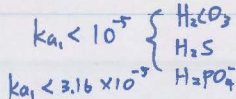 ka₁ < 10⁻⁵ { H₂CO₃
H₂S
H₂PO₄⁻
ka₁ < 3.16 × 10⁻⁵